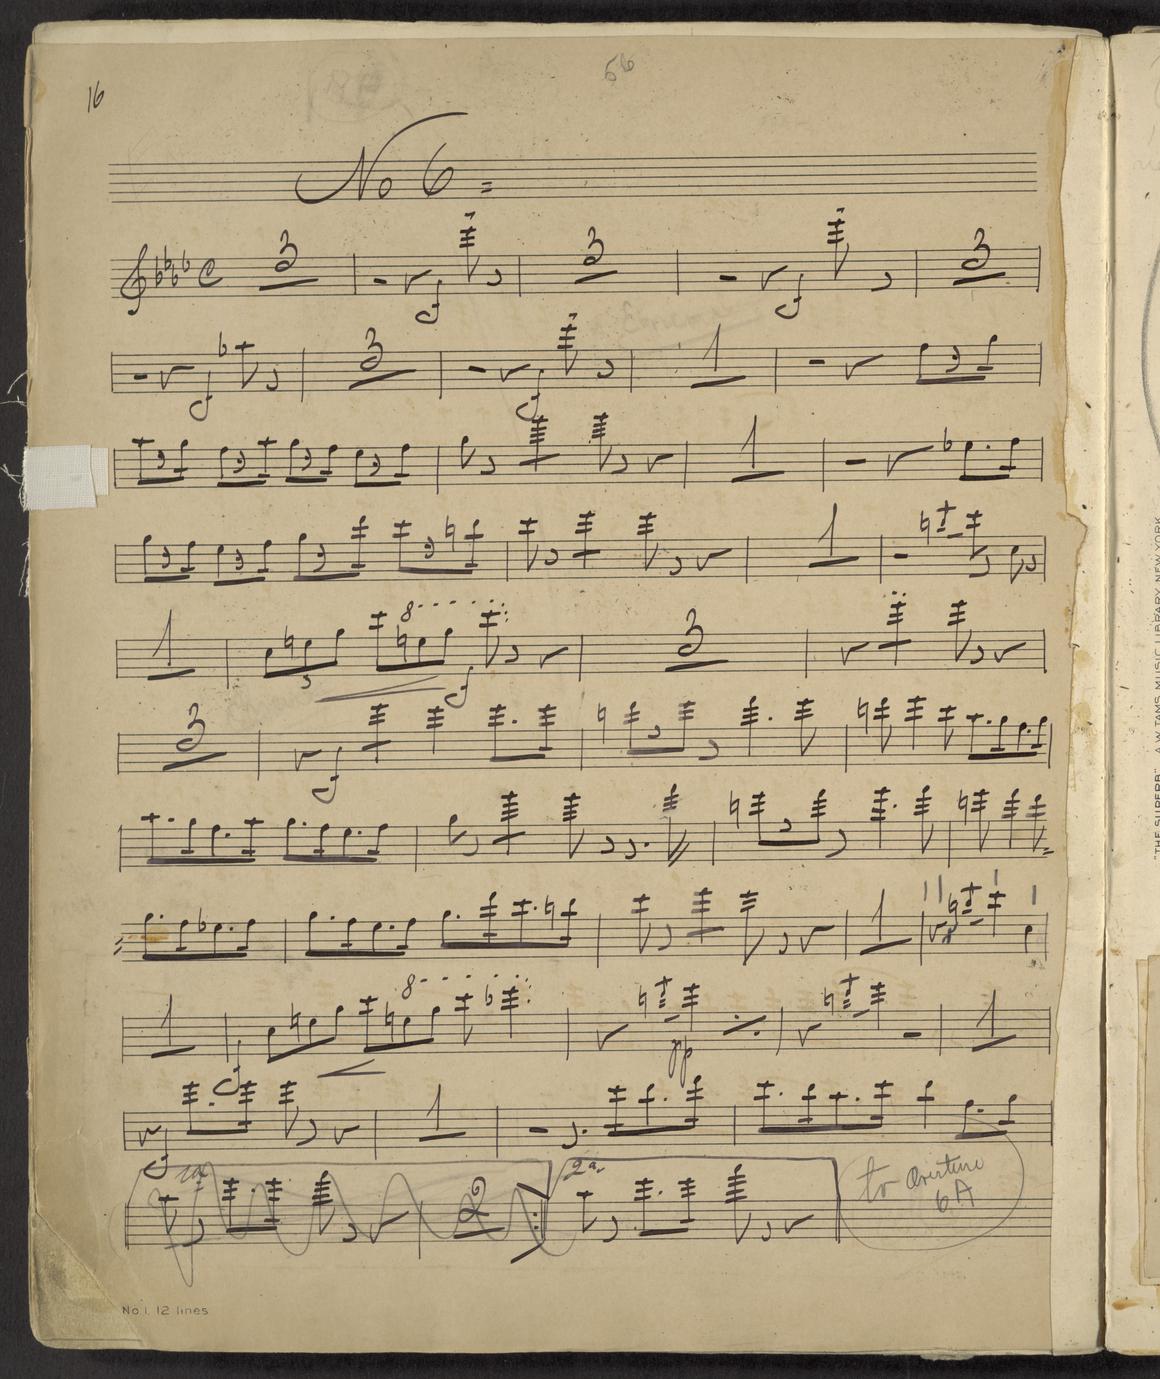 16
56
No 6 =
3 3 3
3 1
1
1
1 8 3 3
3
1
1 8
pp 1
1
1a. 2 2a.
to Overture
6A
No 1. 12 lines
"THE SUPERB" A.W. TAMS MUSIC LIBRARY, NEW YORK